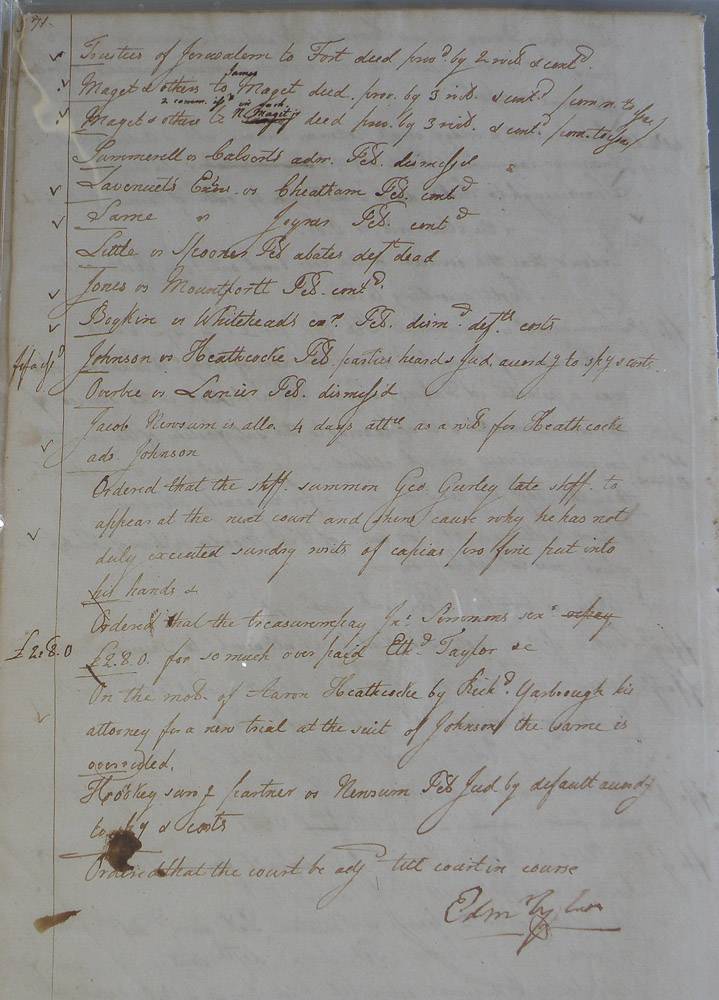 71.
Trustees of Jerusalem to Fort deed provd by 2 wits & contd.
James
Maget & others to Maget deed prov. by 3 wits. & contd (comn. to
2 comm. wit
Maget & others to N. Maget deed prov. by 3 wits. & contd (com. to
Summerell vs Calvert's adm. Peto. dismissd
Lavenuets Exors. vs Cheatham Peto. contd
Same vs Joyner Peto. contd
Little vs Spooner Peto abates deft dead
Jones vs Mountfortt Peto. contd.
Boykin vs Whiteheads exr. Peto. dismd. defts. costs
Johnson vs Heathcocke Peto. parties heard & Jud. accordg to spy & costs
Overbie vs Lanier Peto. dismissd
Jacob Newsum is allo. 4 days attce as a wits for Heathcocke
ads. Johnson
Ordered that the shff. summon Geo. Gurley late shff. to
appear at the next court and shew cause why he has not
duly executed sundry writs of capias pro fine put into
his hands &
Ordered that the treasurer pay Jno. Simmons senr
£2:8.0
£2.8.0. for so much over paid Ethd. Taylor &c
On the moto. of Aaron Heathcocke by Richd. Yarbrough his
attorney for a new trial at the suit of Johnson the same is
overruled.
partner vs Newsum Peto Jud by default accordg
to spy & costs
Ordered that the court be adjd till court in course
Edm Tyler